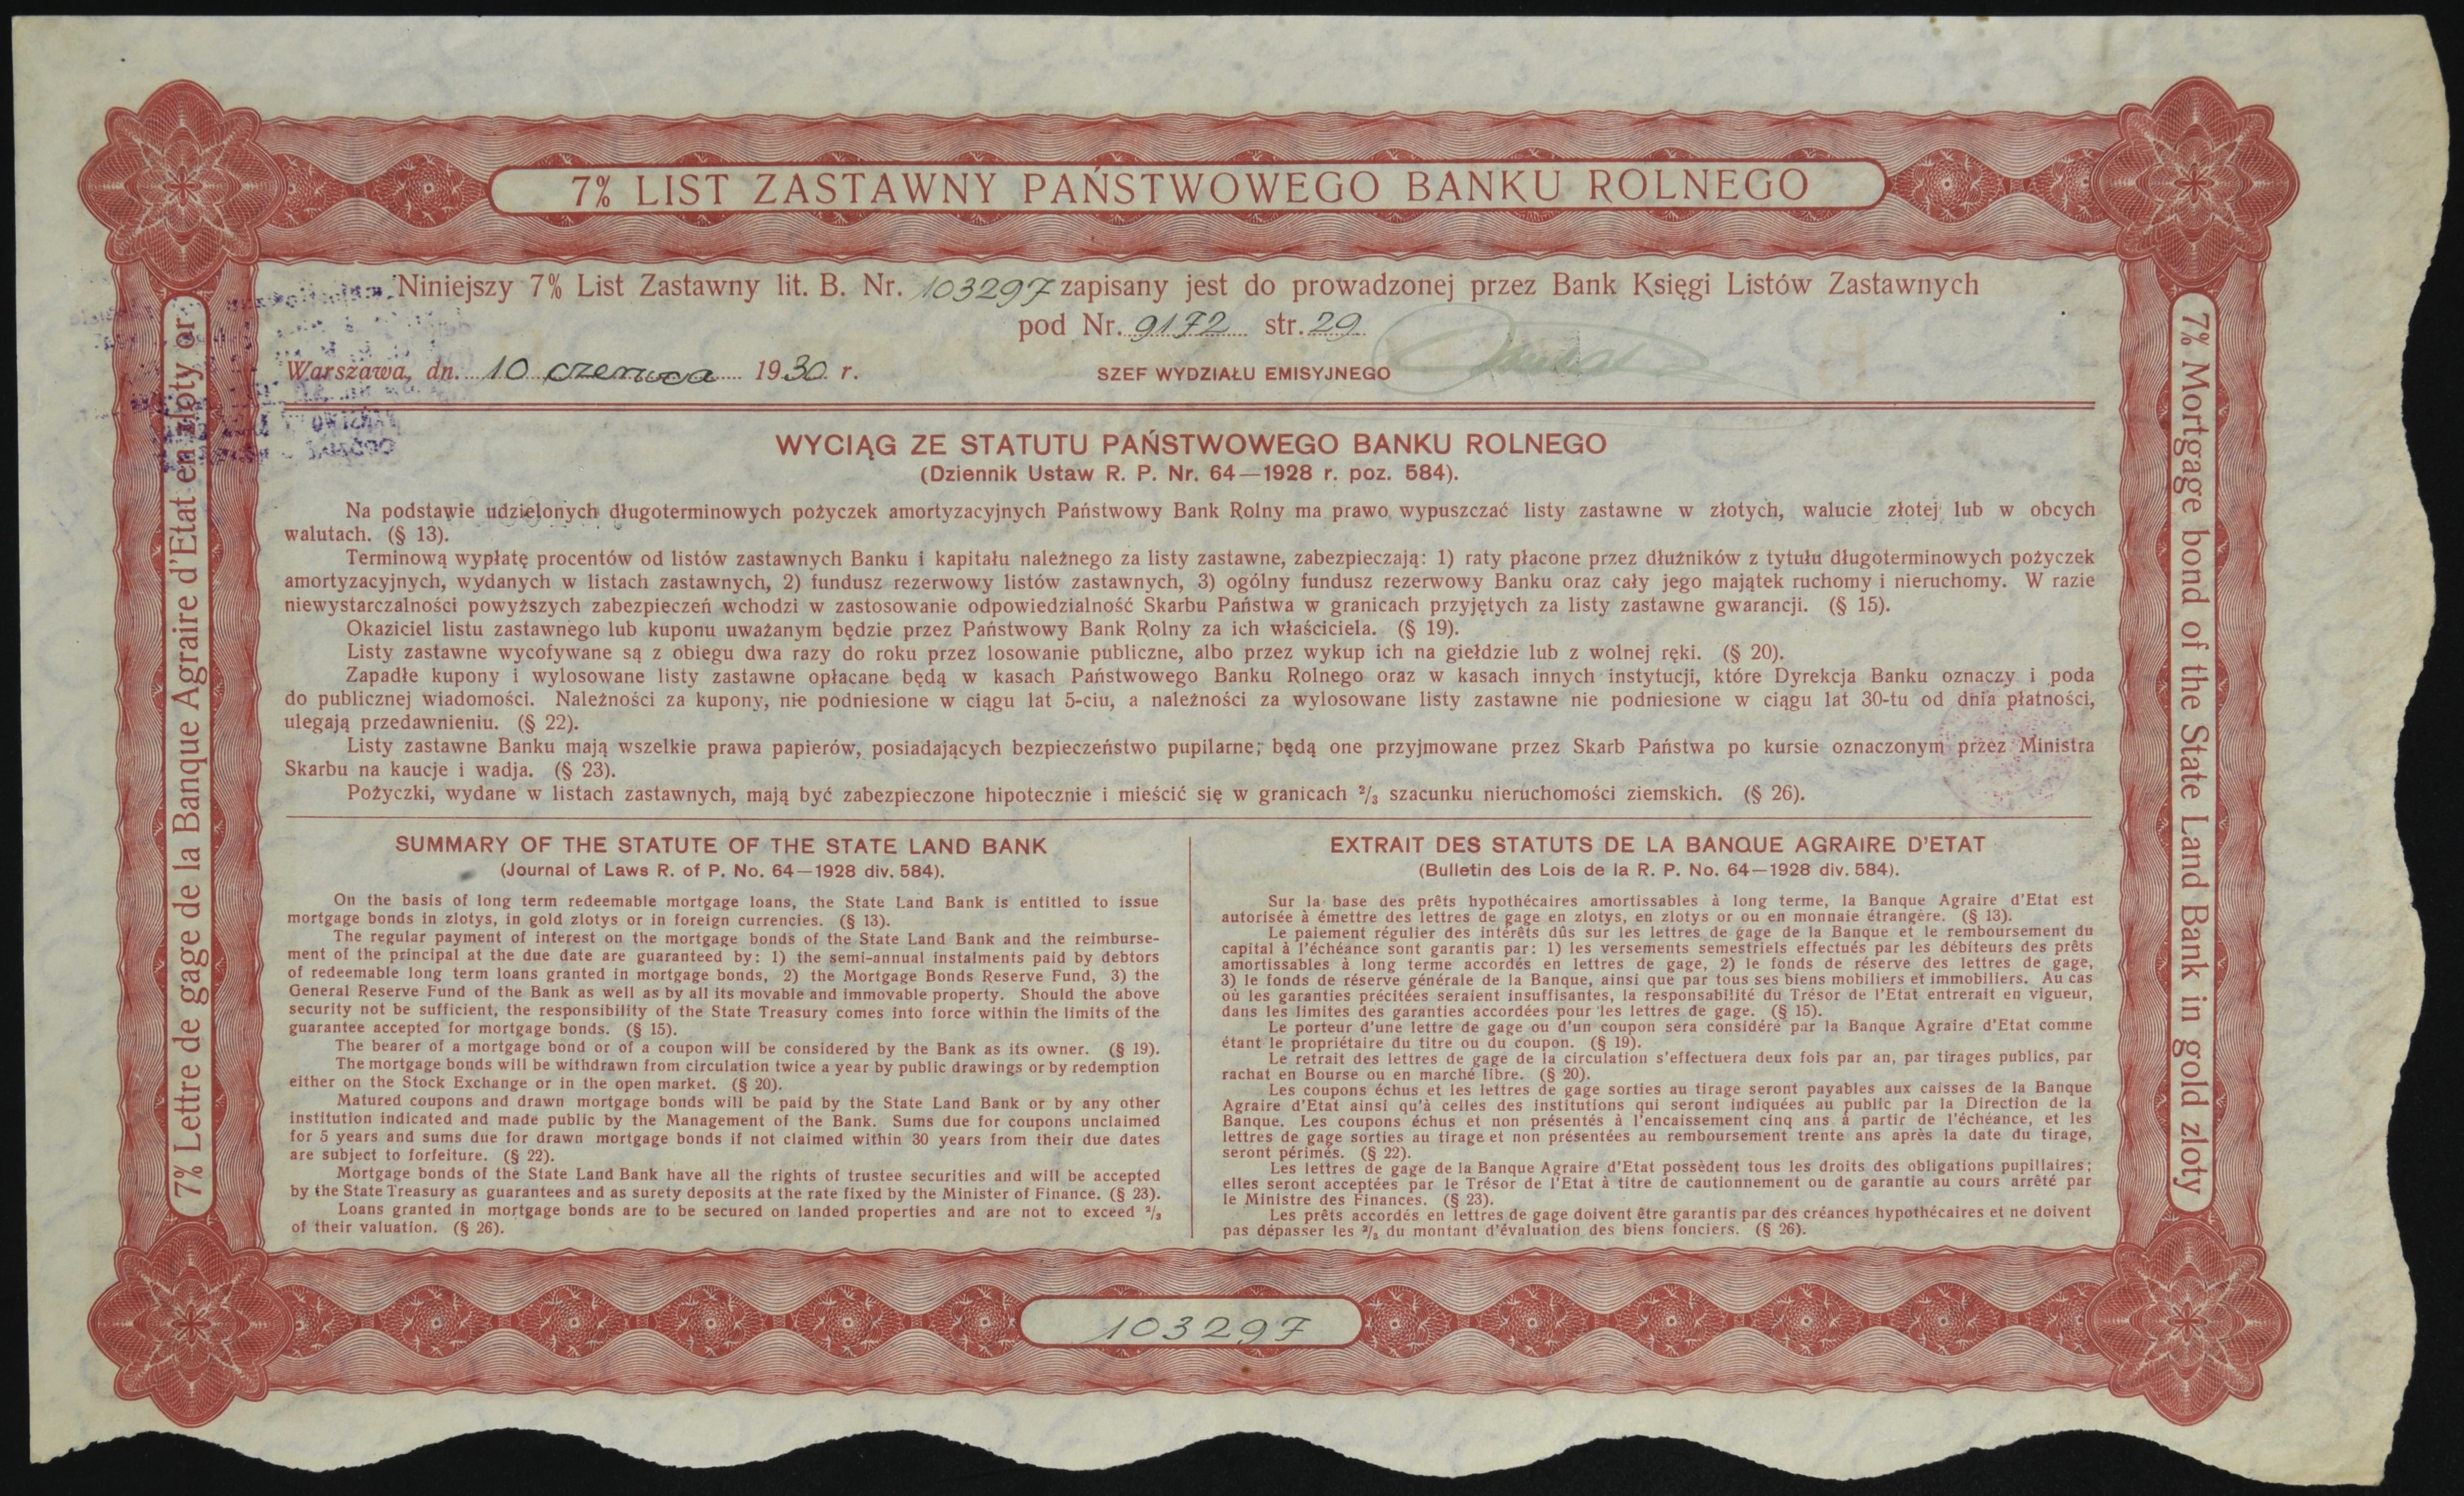 7% LIST ZASTAWNY PAŃSTWOWEGO BANKU ROLNEGO
Niniejszy 7% List Zastawny lit. B. Nr. 103297 zapisany jest do prowadzonej przez Bank Księgi Listów Zastawnych
pod Nr. 9172 str. 29
Warszawa, dn. 10 czerwca 1930 r.
SZEF WYDZIAŁU EMISYJNEGO
WYCIĄG ZE STATUTU PAŃSTWOWEGO BANKU ROLNEGO
(Dziennik Ustaw R. P. Nr. 64—1928 r. poz. 584).
Na podstawie udzielonych długoterminowych pożyczek amortyzacyjnych Państwowy Bank Rolny ma prawo wypuszczać listy zastawne w złotych, walucie złotej lub w obcych
walutach. (§ 13).
Terminową wypłatę procentów od listów zastawnych Banku i kapitału należnego za listy zastawne, zabezpieczają: 1) raty płacone przez dłużników z tytułu długoterminowych pożyczek
amortyzacyjnych, wydanych w listach zastawnych, 2) fundusz rezerwowy listów zastawnych, 3) ogólny fundusz rezerwowy Banku oraz cały jego majątek ruchomy i nieruchomy. W razie
niewystarczalności powyższych zabezpieczeń wchodzi w zastosowanie odpowiedzialność Skarbu Państwa w granicach przyjętych za listy zastawne gwarancji. (§ 15).
Okaziciel listu zastawnego lub kuponu uważanym będzie przez Państwowy Bank Rolny za ich właściciela. (§ 19).
Listy zastawne wycofywane są z obiegu dwa razy do roku przez losowanie publiczne, albo przez wykup ich na giełdzie lub z wolnej ręki. (§ 20).
Zapadłe kupony i wylosowane listy zastawne opłacane będą w kasach Państwowego Banku Rolnego oraz w kasach innych instytucji, które Dyrekcja Banku oznaczy i poda
do publicznej wiadomości. Należności za kupony, nie podniesione w ciągu lat 5-ciu, a należności za wylosowane listy zastawne nie podniesione w ciągu lat 30-tu od dnia płatności,
ulegają przedawnieniu. (§ 22).
Listy zastawne Banku mają wszelkie prawa papierów, posiadających bezpieczeństwo pupilarne; będą one przyjmowane przez Skarb Państwa po kursie oznaczonym przez Ministra
Skarbu na kaucje i wadja. (§ 23).
Pożyczki, wydane w listach zastawnych, mają być zabezpieczone hipotecznie i mieścić się w granicach 2/3 szacunku nieruchomości ziemskich. (§ 26).
SUMMARY OF THE STATUTE OF THE STATE LAND BANK
(Journal of Laws R. of P. No. 64—1928 div. 584).
On the basis of long term redeemable mortgage loans, the State Land Bank is entitled to issue
mortgage bonds in zlotys, in gold zlotys or in foreign currencies. (§ 13).
The regular payment of interest on the mortgage bonds of the State Land Bank and the reimburse-
ment of the principal at the due date are guaranteed by: 1) the semi-annual instalments paid by debtors
of redeemable long term loans granted in mortgage bonds, 2) the Mortgage Bonds Reserve Fund, 3) the
General Reserve Fund of the Bank as well as by all its movable and immovable property. Should the above
security not be sufficient, the responsibility of the State Treasury comes into force within the limits of the
guarantee accepted for mortgage bonds. (§ 15).
The bearer of a mortgage bond or of a coupon will be considered by the Bank as its owner. (§ 19).
The mortgage bonds will be withdrawn from circulation twice a year by public drawings or by redemption
either on the Stock Exchange or in the open market. (§ 20).
Matured coupons and drawn mortgage bonds will be paid by the State Land Bank or by any other
institution indicated and made public by the Management of the Bank. Sums due for coupons unclaimed
for 5 years and sums due for drawn mortgage bonds if not claimed within 30 years from their due dates
are subject to forfeiture. (§ 22).
Mortgage bonds of the State Land Bank have all the rights of trustee securities and will be accepted
by the State Treasury as guarantees and as surety deposits at the rate fixed by the Minister of Finance. (§ 23).
Loans granted in mortgage bonds are to be secured on landed properties and are not to exceed 2/3
of their valuation. (§ 26).
EXTRAIT DES STATUTS DE LA BANQUE AGRAIRE D'ETAT
(Bulletin des Lois de la R. P. No. 64—1928 div. 584).
Sur la base des prêts hypothécaires amortissables à long terme, la Banque Agraire d'Etat est
autorisée à émettre des lettres de gage en zlotys, en zlotys or ou en monnaie étrangère. (§ 13).
Le paiement régulier des intérêts dûs sur les lettres de gage de la Banque et le remboursement du
capital à l'échéance sont garantis par: 1) les versements semestriels effectués par les débiteurs des prêts
amortissables à long terme accordés en lettres de gage, 2) le fonds de réserve des lettres de gage,
3) le fonds de réserve générale de la Banque, ainsi que par tous ses biens mobiliers et immobiliers. Au cas
où les garanties précitées seraient insuffisantes, la responsabilité du Trésor de l'Etat entrerait en vigueur,
dans les limites des garanties accordées pour les lettres de gage. (§ 15).
Le porteur d'une lettre de gage ou d'un coupon sera considéré par la Banque Agraire d'Etat comme
étant le propriétaire du titre ou du coupon. (§ 19).
Le retrait des lettres de gage de la circulation s'effectuera deux fois par an, par tirages publics, par
rachat en Bourse ou en marché libre. (§ 20).
Les coupons échus et les lettres de gage sorties au tirage seront payables aux caisses de la Banque
Agraire d'Etat ainsi qu'à celles des institutions qui seront indiquées au public par la Direction de la
Banque. Les coupons échus et non présentés à l'encaissement cinq ans à partir de l'échéance, et les
lettres de gage sorties au tirage et non présentées au remboursement trente ans après la date du tirage,
seront périmés. (§ 22).
Les lettres de gage de la Banque Agraire d'Etat possèdent tous les droits des obligations pupillaires;
elles seront acceptées par le Trésor de l'Etat à titre de cautionnement ou de garantie au cours arrêté par
le Ministre des Finances. (§ 23).
Les prêts accordés en lettres de gage doivent être garantis par des créances hypothécaires et ne doivent
pas dépasser les 2/3 du montant d'évaluation des biens fonciers. (§ 26).
103297
7% Lettre de gage de la Banque Agraire d'Etat en zloty or
7% Mortgage bond of the State Land Bank in gold zloty